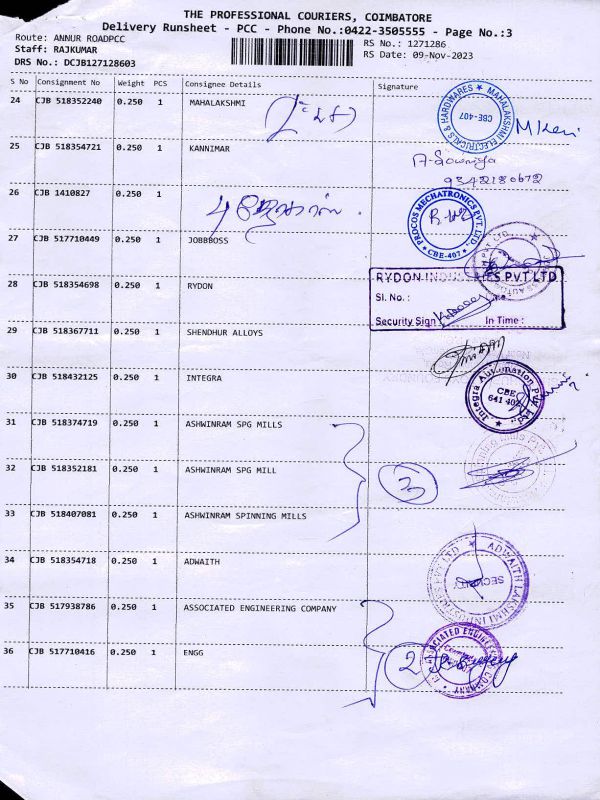 THE PROFESSIONAL COURIERS, COIMBATORE
Delivery Runsheet - PCC - Phone No.:0422-3505555 - Page No.:3
Route: ANNUR ROADPCC
RS No.: 1271286
Staff: RAJKUMAR
RS Date: 09-Nov-2023
DRS No.: DCJB127128603
S No Consignment No Weight PCS Consignee Details Signature
24 CJB 518352240 0.250 1 MAHALAKSHMI
MAHALAKSHMI ELECTRICALS & HARDWARES CBE-407
25 CJB 518354721 0.250 1 KANNIMAR
A-Sowmiya
9342180672
26 CJB 1410827 0.250 1
PROCOS MECHATRONICS PVT. LTD. CBE-407
27 CJB 517710449 0.250 1 JOBBBOSS
28 CJB 518354698 0.250 1 RYDON
RYDON INDUSTRIES PVT LTD
Sl. No. :
Security Sign In Time :
29 CJB 518367711 0.250 1 SHENDHUR ALLOYS
30 CJB 518432125 0.250 1 INTEGRA
Integra Automation Pvt Ltd CBE 641 407
31 CJB 518374719 0.250 1 ASHWINRAM SPG MILLS
32 CJB 518352181 0.250 1 ASHWINRAM SPG MILL
3
33 CJB 518407081 0.250 1 ASHWINRAM SPINNING MILLS
34 CJB 518354718 0.250 1 ADWAITH
ADWAITH LAKSHMI INDUSTRIES PVT LTD SECURITY
35 CJB 517938786 0.250 1 ASSOCIATED ENGINEERING COMPANY
36 CJB 517710416 0.250 1 ENGG
2
ASSOCIATED ENGINEERING COMPANY